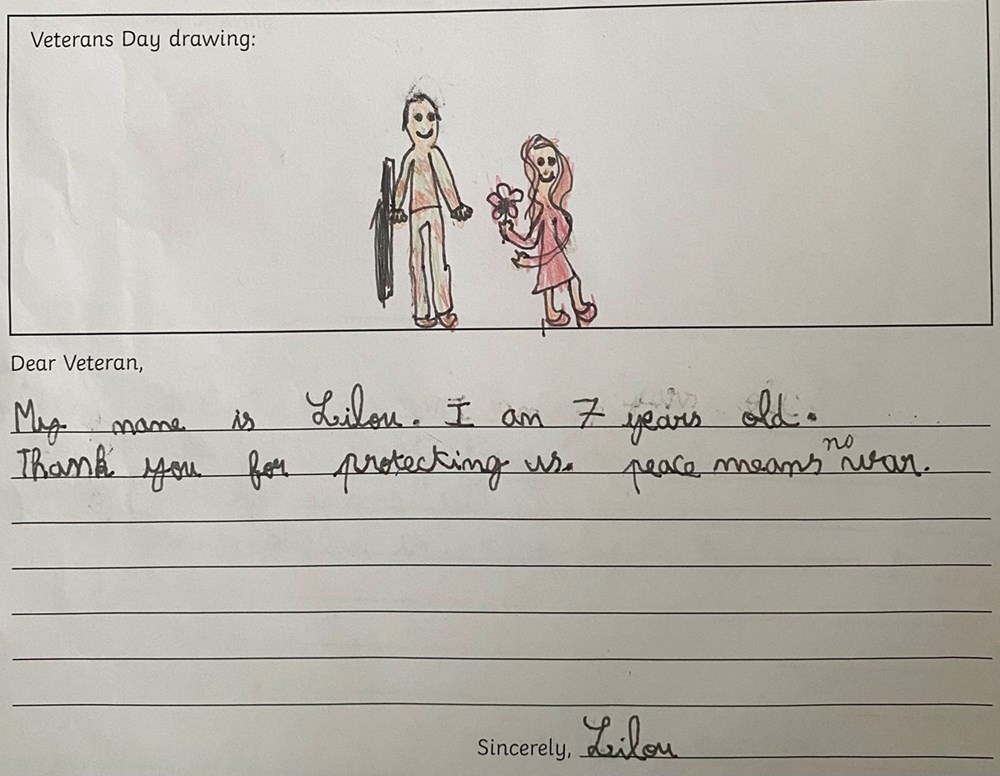 Veterans Day drawing:
Dear Veteran,
My name is Lilou. I am 7 years old.
Thank you for protecking us. peace means no war.
Sincerely, Lilou